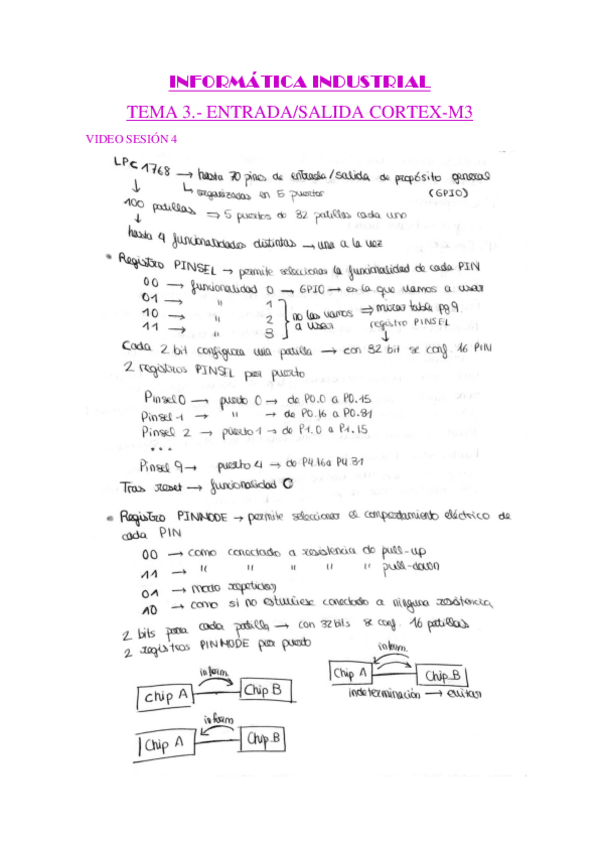 INFORMÁTICA INDUSTRIAL
TEMA 3.- ENTRADA/SALIDA CORTEX-M3
VIDEO SESIÓN 4
LPC1768 → hasta 70 pines de entrada/salida de propósito general
↳ organizadas en 5 puertos (GPIO)
↓
100 patillas ⇒ 5 puertos de 32 patillas cada uno
↓
hasta 4 funcionalidades distintas → una a la vez
• Registro PINSEL → permite seleccionar la funcionalidad de cada PIN
00 → funcionalidad 0 → GPIO → es la que vamos a usar
01 → " 1
10 → " 2 } no las vamos a usar ⇒ mirar tabla pg 9
11 → " 3 registro PINSEL
↓
Cada 2 bit configura una patilla → con 32 bit se conf. 16 PIN
2 registros PINSEL por puerto
Pinsel 0 → puerto 0 → de P0.0 a P0.15
Pinsel 1 → " → de P0.16 a P0.31
Pinsel 2 → puerto 1 → de P1.0 a P1.15
...
Pinsel 9 → puerto 4 → de P4.16 a P4.31
Tras reset → funcionalidad 0
• Registro PINMODE → permite seleccionar el comportamiento eléctrico de
cada PIN
00 → como conectado a resistencia de pull-up
11 → " " " " " pull-down
01 → modo repetidor
10 → como si no estuviese conectado a ninguna resistencia
2 bits para cada patilla → con 32 bits se conf. 16 patillas
2 registros PINMODE por puerto
inform.
Chip A Chip B
inform.
Chip A Chip B
indeterminación → evitar
inform
Chip A Chip B